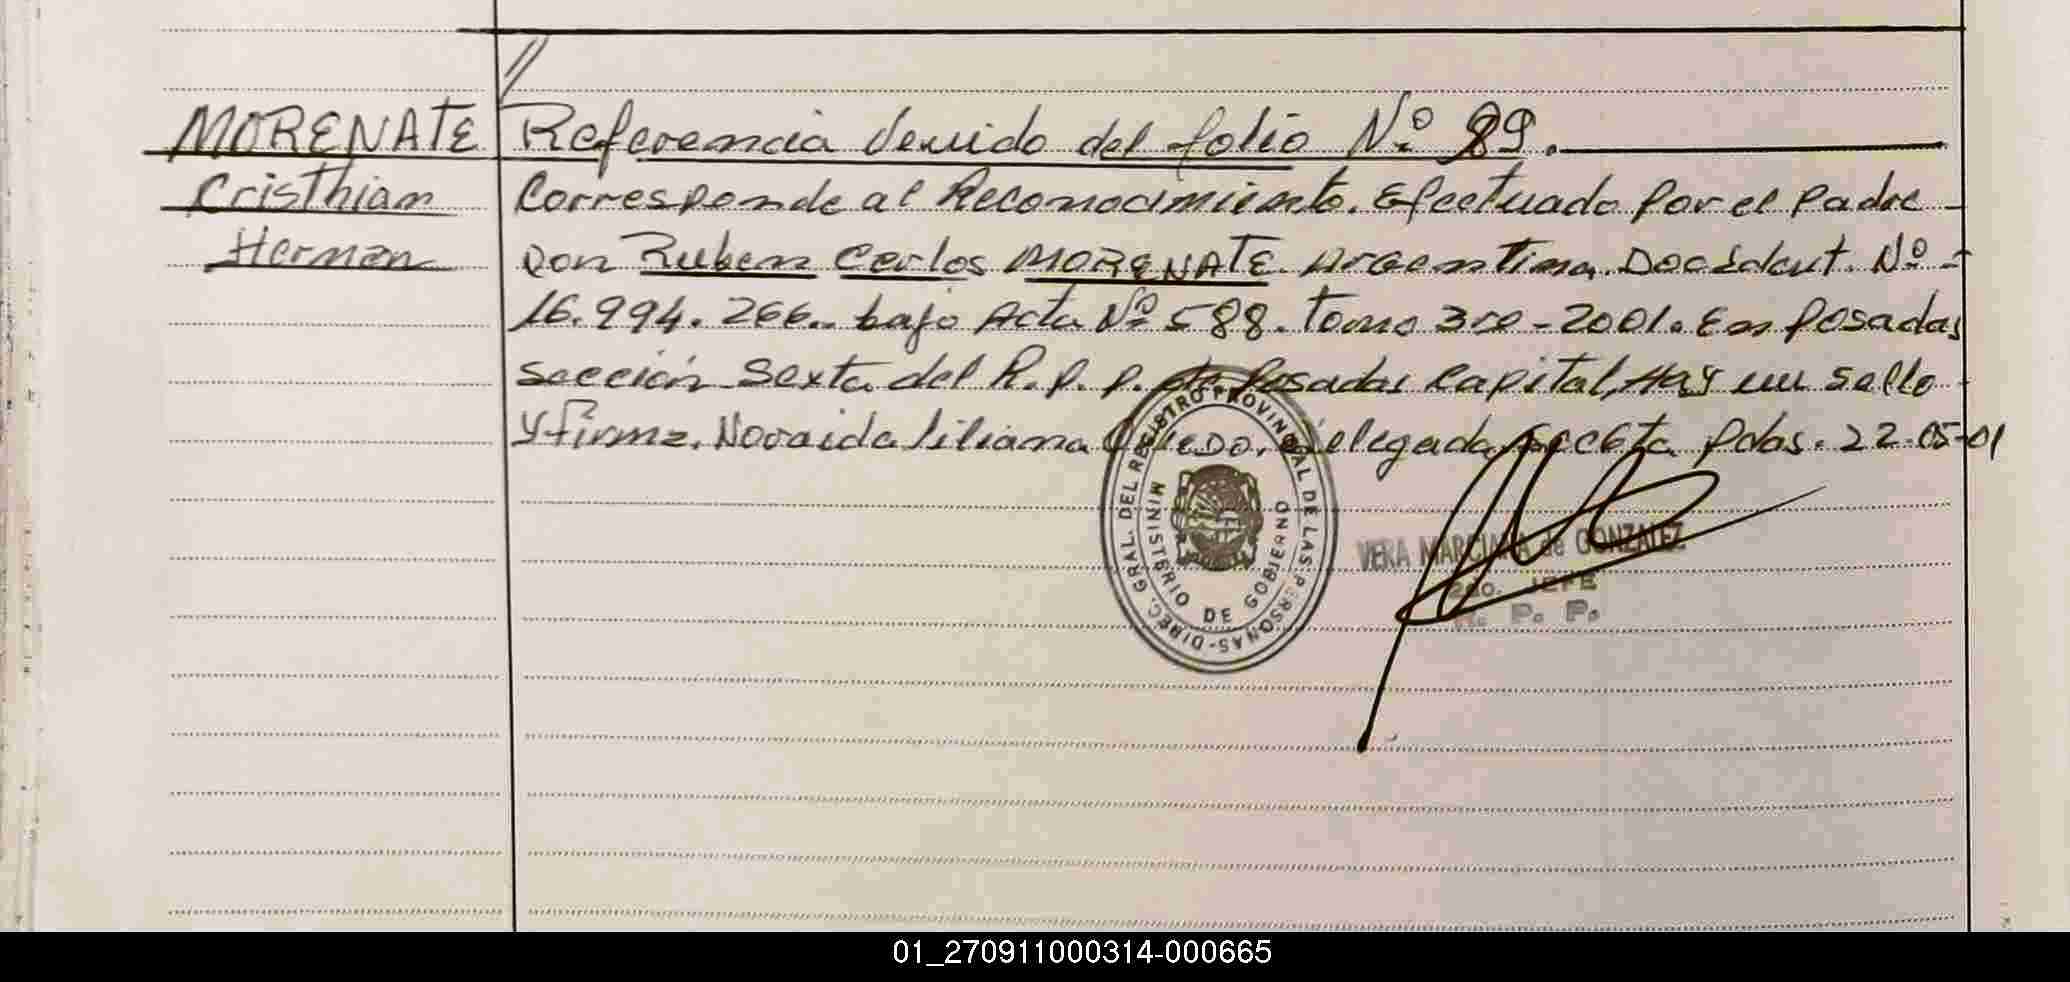 //
MORENATE Referencia venido del folio Nº 89.
Cristhian Corresponde al Reconocimiento. Efectuado por el Padre -
Hernan Don Ruben Carlos MORENATE. Argentina. Doc. Ident. Nº -
16.994.266. bajo Acta Nº 588. Tomo 3ro - 2001. En Posadas
Sección Sexta del R. P. P. de Posadas Capital, Hay un sello -
y firma. Noraida Liliana Delegada Pdas. 22-05-01
DIREC. GRAL. DEL REGISTRO PROVINCIAL DE LAS PERSONAS-
MINISTERIO DE GOBIERNO
VERA MARCIANA de GONZALEZ
2do. JEFE
R. P. P.
01_270911000314-000665